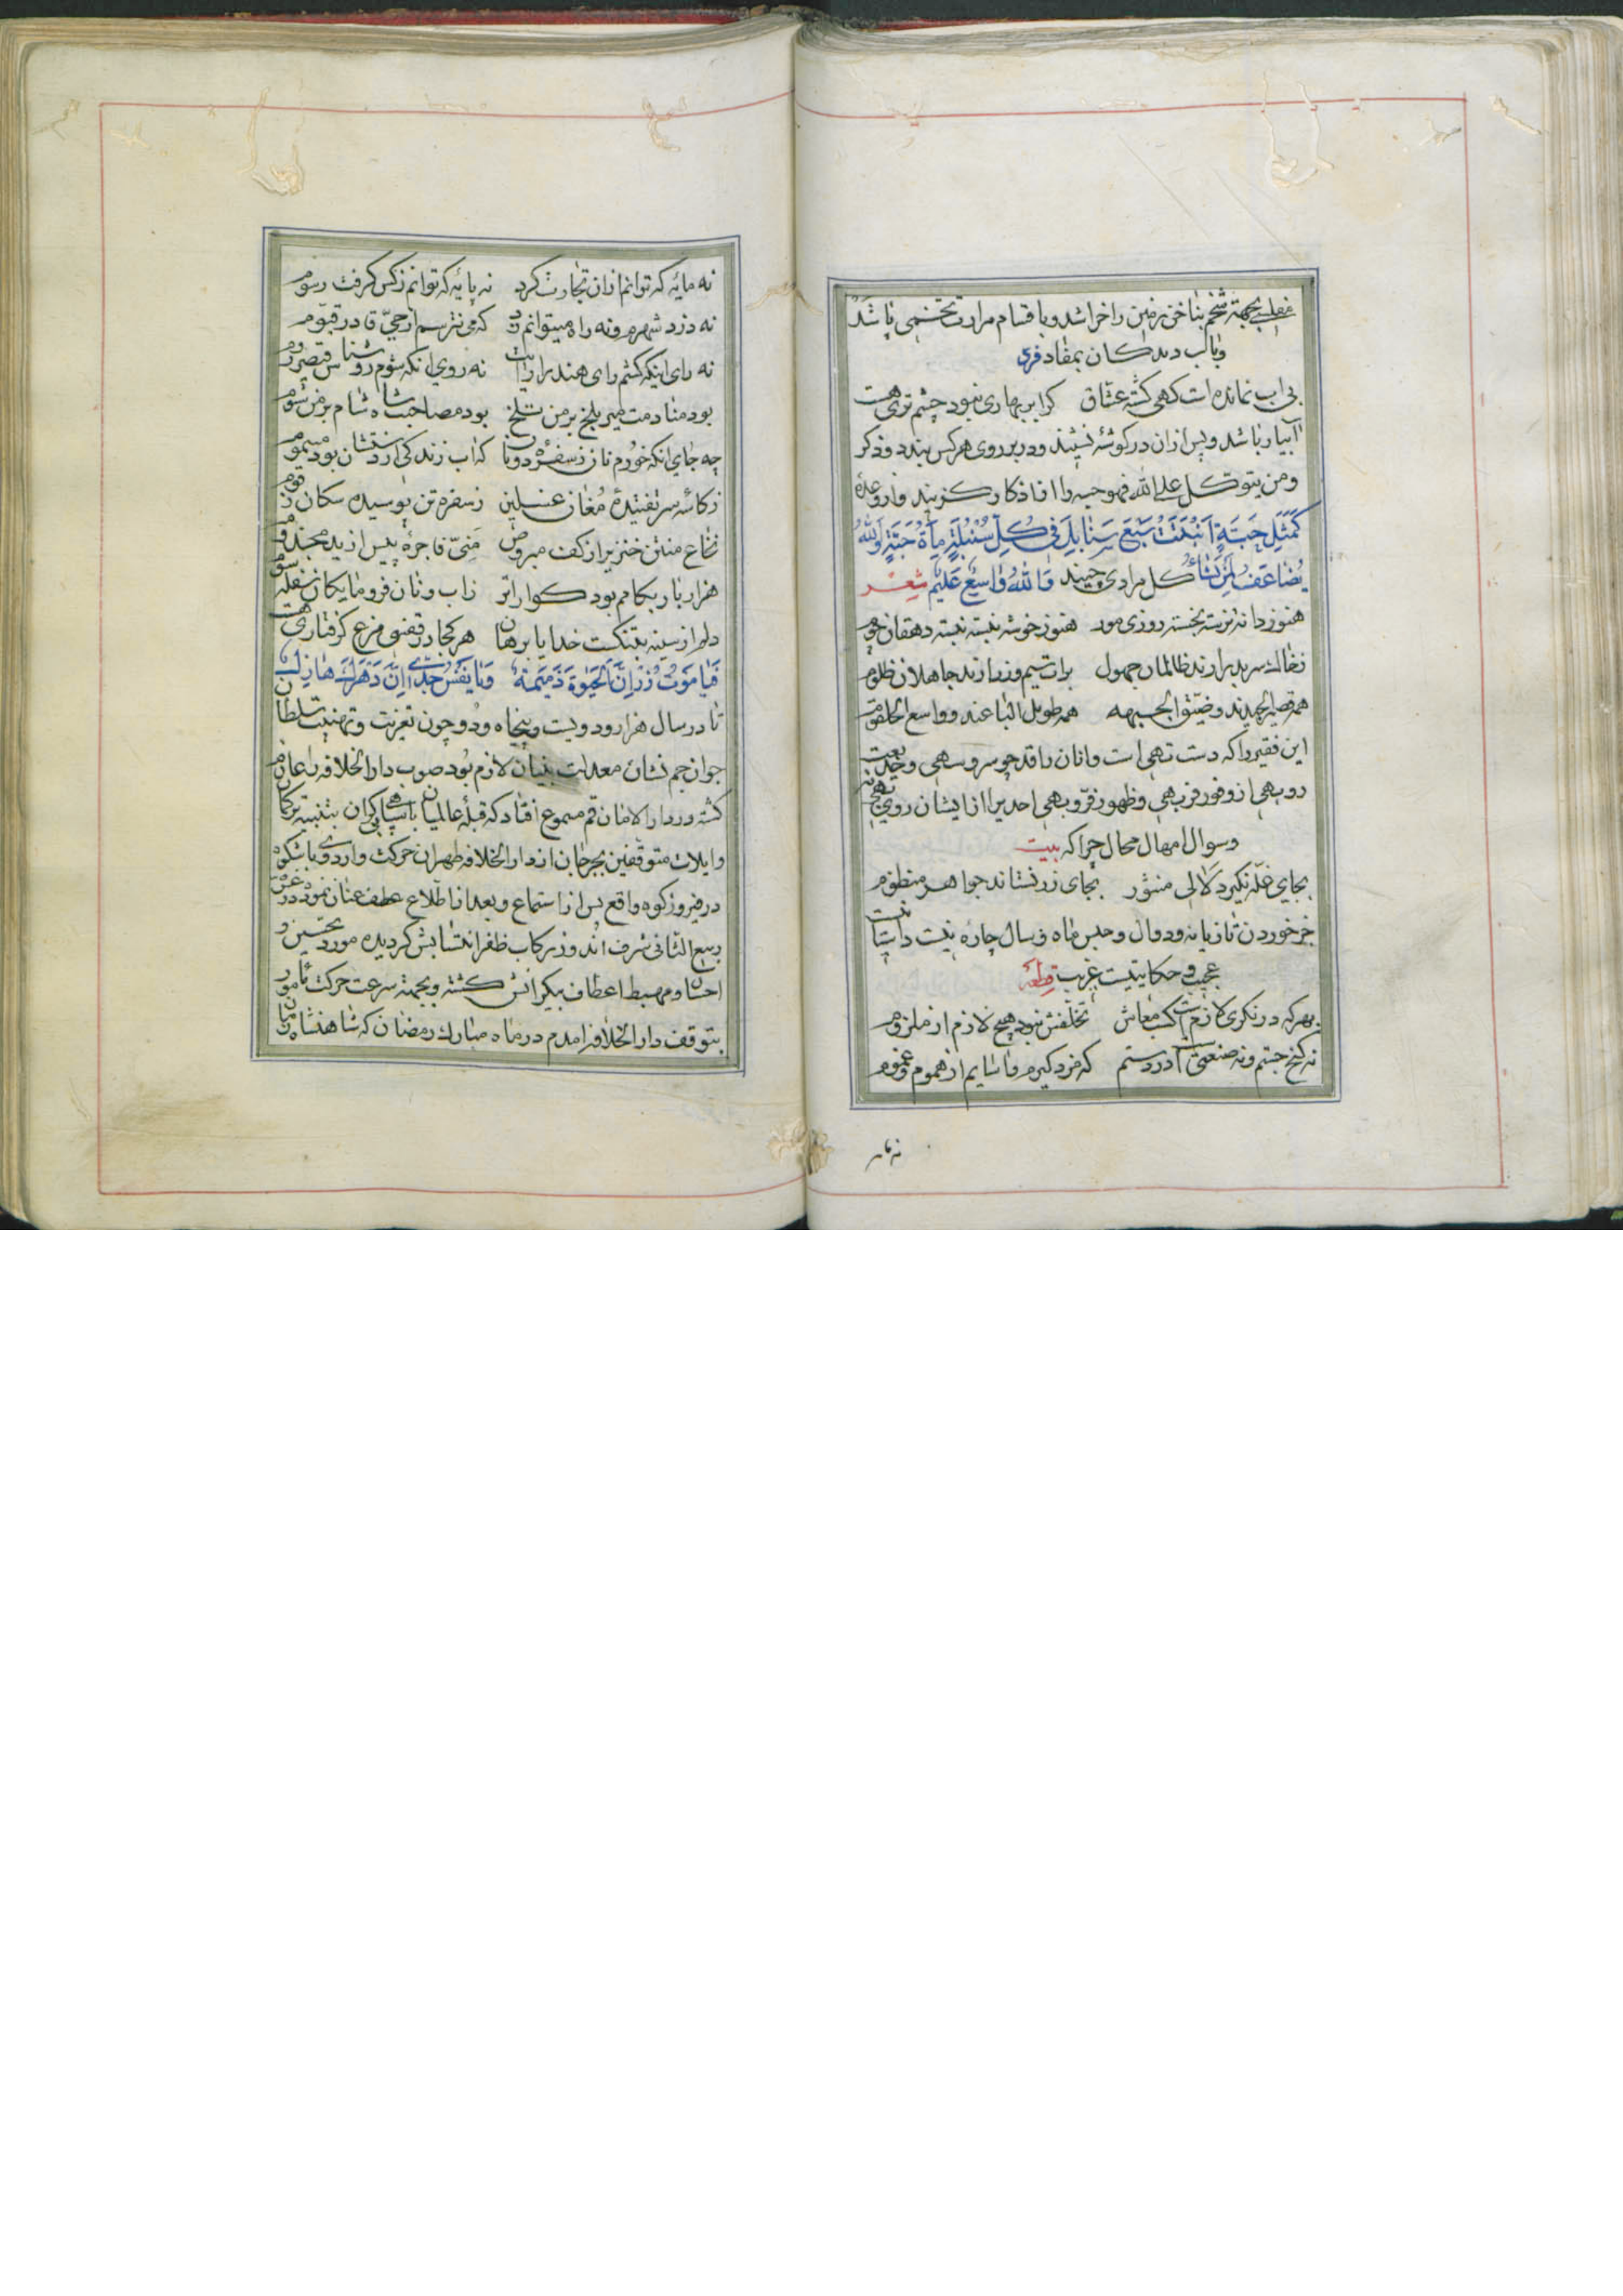 بجهة شخم بناخن زمین را خراشد و باقسام مرارت تخمی پاشد
و باب دیدکان بمفاد فرد
بی اب نمانده است کهی کشته عشاق کر ابر بهاری نبود چشم تری هست
آبیار باشد و پس ازان در کوشهٔ نشیند و در بر روی هرکس ببندد و ذکر
ومن یتوکل علی الله فهو حسبه را از اذکار کزیند و از وعدهٔ
کَمَثَلِ حَبَّةٍ اَنْبَتَتْ سَبْعَ سَنابِلَ فی کُلِّ سُنْبُلَةٍ مِأَةُ حَبَّةٍ وَاللهُ
یُضاعِفُ لِمَنْ یَشاءُ کل مرادی چیند وَاللهُ واسِعٌ عَلیمٌ شعر
هنوز دانه نرسته بخسته روزی مور هنوز خوشه نبسته نبسته دهقان
ز خاک سر بدر ارند ظالمان جهول برات سیم و زر ارند جاهلان ظلوم
همه قصیر الید و ضیق الجبهه همه طویل الباعند و واسع الحلقوم
این فقیر را که دست تهی است و انان را قد چو سرو سهی و خدیعت
روبهی از وفور فربهی و ظهور فرّ و بهی احدیرا از ایشان روی تهی نه
وسوال امهال محال چرا که بیت
بجای غلّه نکیرد لالی منثور بجای زر نستاند جواهر منظوم
جز خوردن تازیانه و دوال و حبس ماه و سال چاره نیست داستانیست
عجیب و حکایتیست غریب قطعه
بهر که در نکری لازمست کسب معاش تخلّفش نبود هیچ لازم از ملزوم
نه کنج جستم و نه صنعتی است در دستم که مزد کیرم و اسایم از هموم و غموم
نه مایه
نه مایهٔ که توانم ازان تجارت کرد نه پایهٔ که توانم ز کس کرفت رسوم
نه دزد شهرم و نه راه میتوانم زد که می نترسم از حیّ قادر قیّوم
نه رای اینکه کشم رای هند را رایت نه روی انکه شوم روشناس قیصر روم
بود منادمت میر بلخ بر من تلخ بود مصاحبت شاه شام بر من شوم
چه جای انکه خورم نان ز سفرهٔ دونان که اب زندکی ار زدستشان بود مسموم
ز کاسهٔ سر تفتیدهٔ مغان غسلین ز سفره تن پوسیده سکان زقوم
نخاع منتن خنزیر از کف مبروص منیّ فاجرهٔ پیس از ید مجذوم
هزار بار بکامم بود کواراتر ز اب و نان فرومایکان سفله
دلم از سینه بتنکست خدایا برهان هر کجا در قفسی مرغ کرفتاری هست
فَیا مَوْتُ زُرْ اِنَّ الْحَیوةَ ذَمیمَةٌ وَ یا نَفْسُ جِدّی اِنَّ دَهْرَکِ هازِلٌ
تا در سال هزار و دویست و پنجاه و دو چون تعزیت و تهنیت سلطان
جوان جم نشان معدلت بنیان لازم بود صوب دار الخلافه را عازم
کشته در دار الامان قم مسموع افتاد که قبلهٔ عالمیان با سپاهی کران بتنبیه ترکان
و ایلات متوقفین بجرجان از دار الخلافه طهران حرکت و اردوی با شکوه
در فیروزکوه واقع پس از استماع و بعد از اطلاع عطف عنان نموده در غره
ربیع الثانی شرف اندوز رکاب ظفر انتسابش کردیده مورد تحسین و
احسان و مهبط اعطاف بیکرانش کشته و بجهة سرعت حرکت مامور
بتوقف دار الخلافه امدم در ماه مبارک رمضان که شاهنشاه